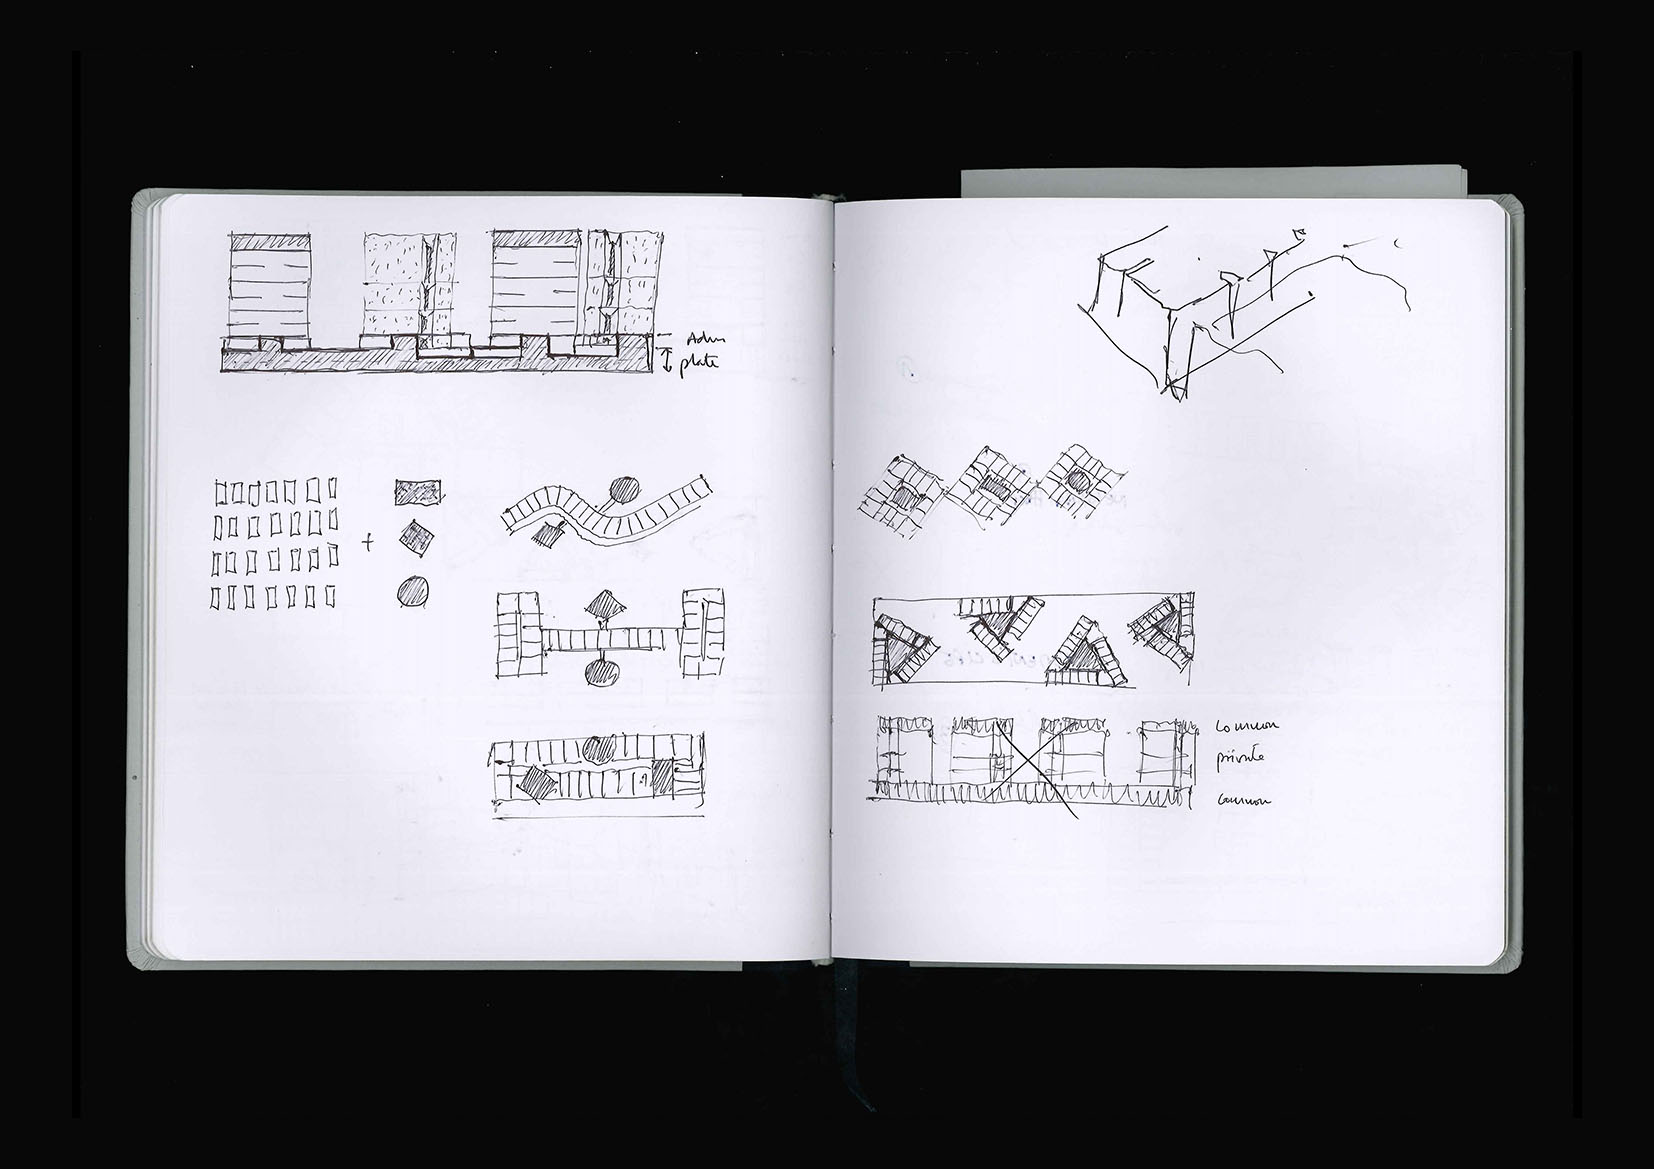 Adm
plate
+
Common
private
Common